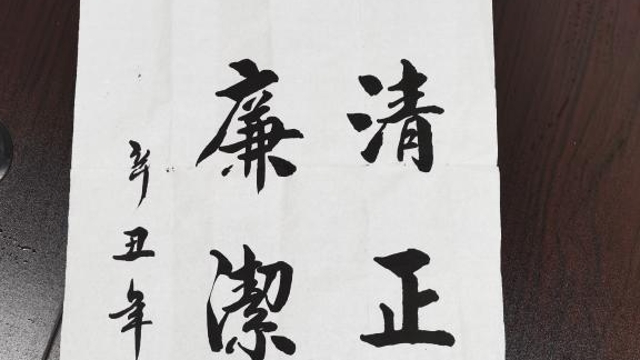 清正
廉潔
辛丑年